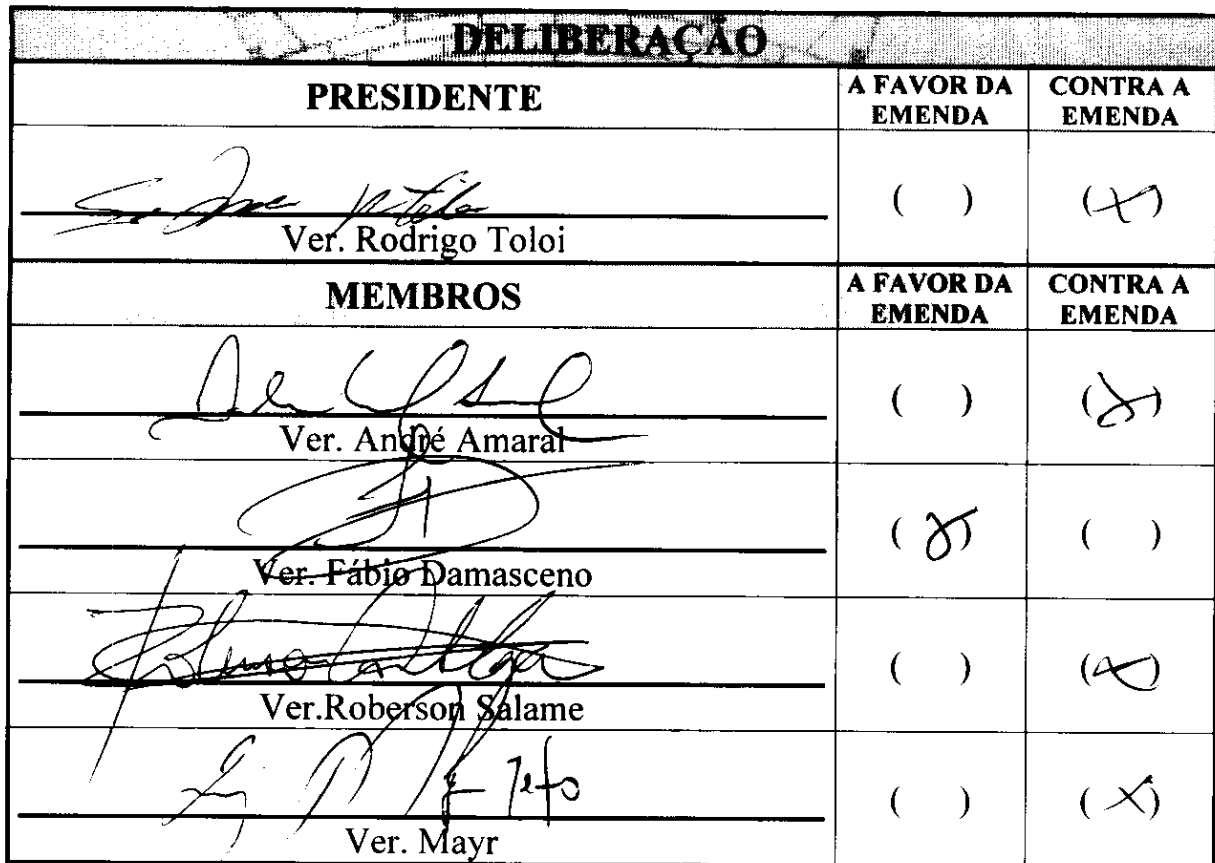 DELIBERAÇÃO
PRESIDENTE
A FAVOR DA EMENDA
CONTRA A EMENDA
( ) (X)
Ver. Rodrigo Toloi
MEMBROS
A FAVOR DA EMENDA
CONTRA A EMENDA
( ) (X)
Ver. André Amaral
(X) ( )
Ver. Fábio Damasceno
( ) (X)
Ver.Roberson Salame
( ) (X)
Ver. Mayr